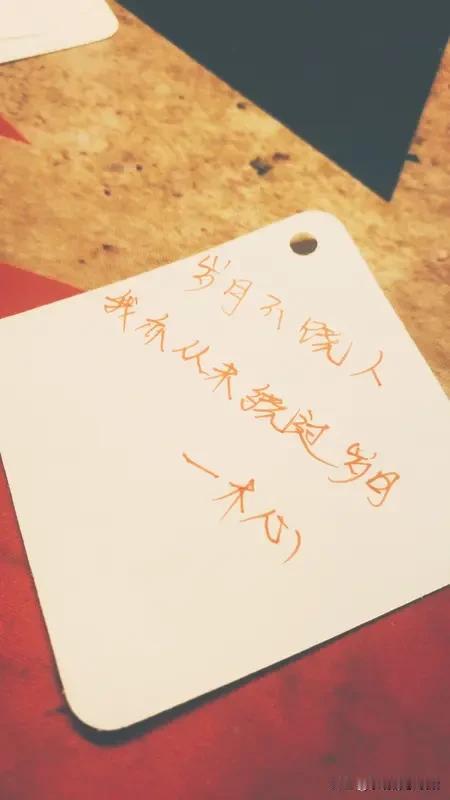 岁月不饶人
我亦从未饶过岁月
—木心